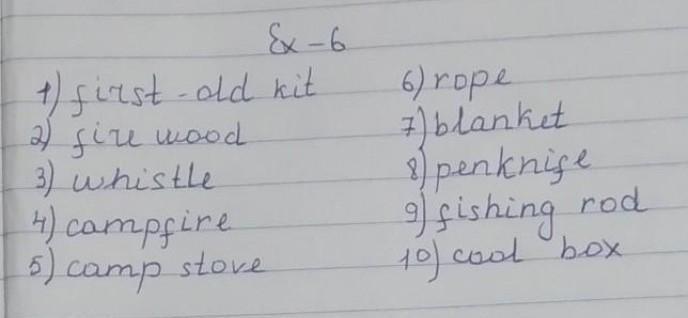 Ex - 6
1) first-old kit
2) fire wood
3) whistle
4) campfire
5) camp stove
6) rope
7) blanket
8) penknife
9) fishing rod
10) cool box